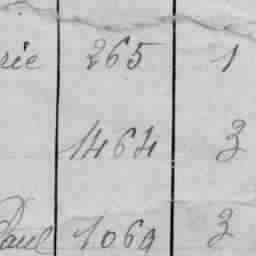 rie 265 1
1464 3
Paul 1069 3